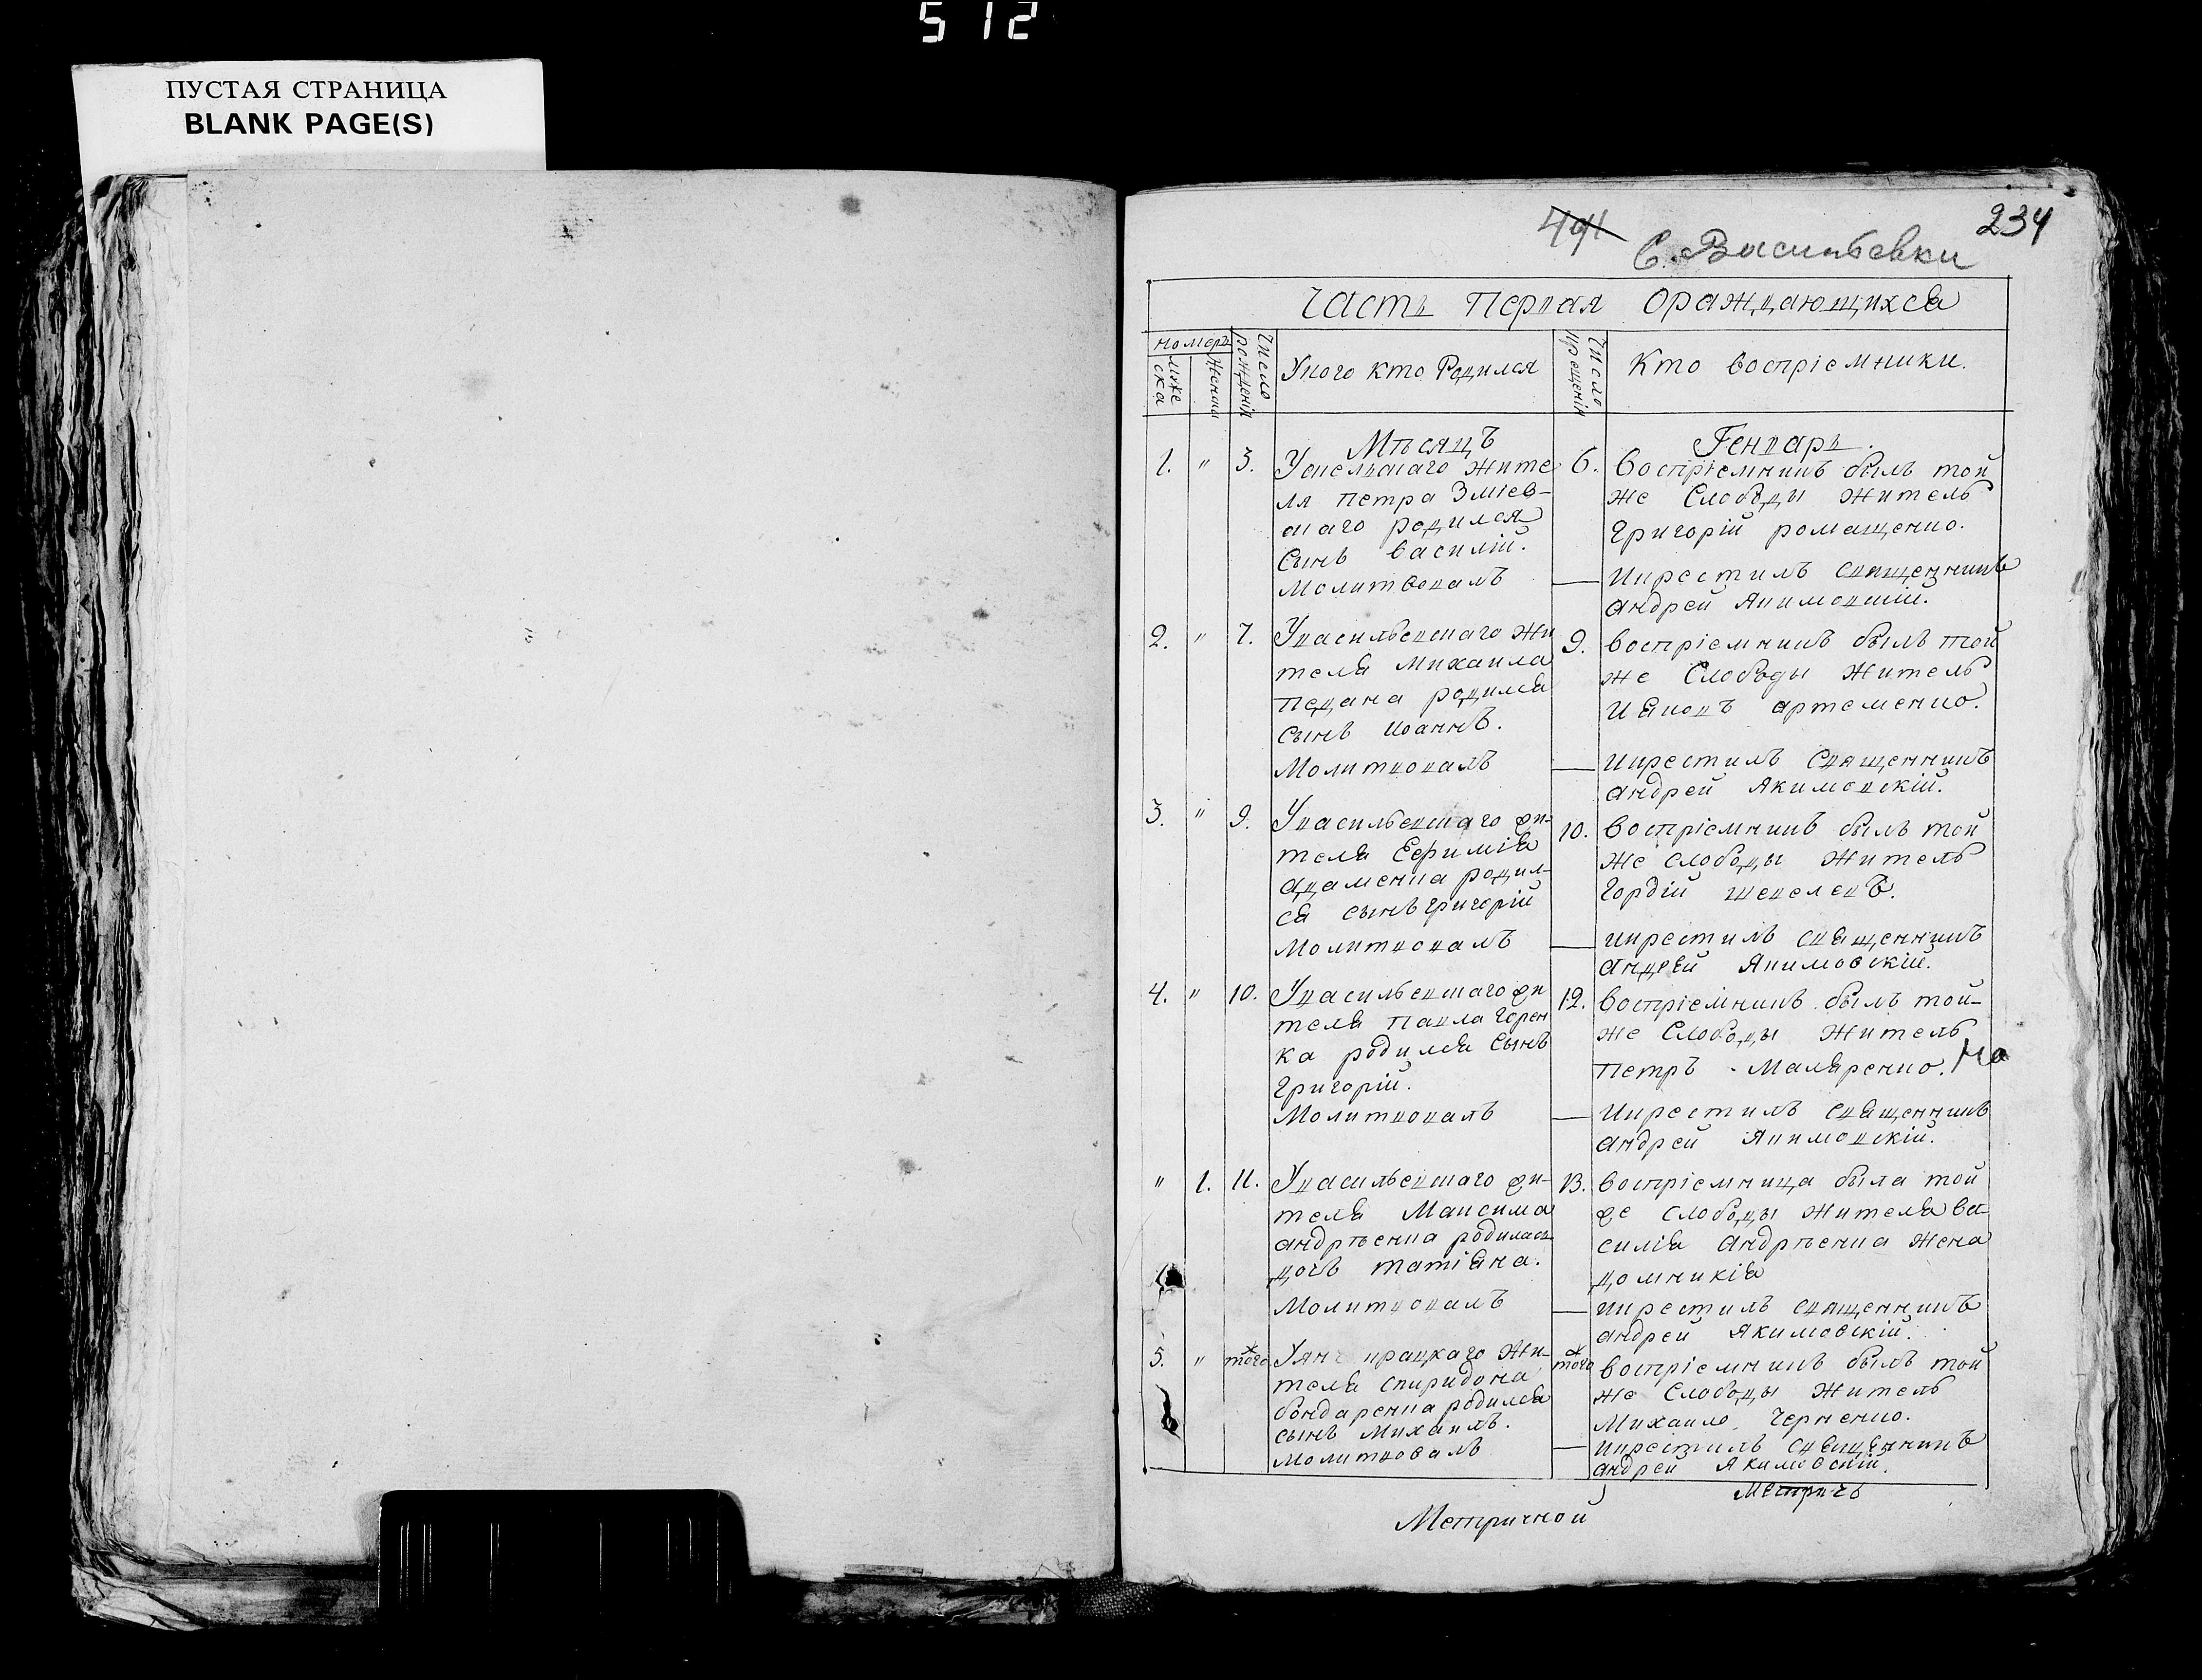 512
ПУСТАЯ СТРАНИЦА
BLANK PAGE(S)
491
234
С. Васильевки
Часть Первая Ораждающихся
номеръ
муже
ска
женска
Число
рожденія
Укого кто Родился
Число
крещенія
Кто воспріемники.
Мѣсяцъ
Генварь.
1. " 3.
жите
ля петра Зміев-
скаго родился
Сынъ василій.
Молитвовалъ
6. Воспріемникъ былъ той
же Слободы Житель
Григорій ромащенко.
Икрестилъ священникъ
андрей Якимовскій.
2. " 7. Увасильевскаго жи
теля михаила
педана родился
Сынъ иоаннъ.
Молитвовалъ
9. воспріемникъ былъ той
же Слободы Житель
Ияковъ артеменко.
икрестилъ Священникъ
андрей Якимовскій.
3. " 9. Увасильевскаго жи-
теля Ефимія
адаменка родил-
ся сынъ григорій
Молитвовалъ
10. Воспріемникъ былъ той
же слободы житель
гордій шевелевъ.
икрестилъ священникъ
андрей Якимовскій.
4. " 10. Увасильевскаго жи
теля павла горен
ка родился Сынъ
григорій.
Молитвовалъ
12. Воспріемникъ былъ той-
же Слободы Житель
петръ Маляренко.
Икрестилъ священникъ
андрей Якимовскій.
" 1. 11. Увасильевскаго жи-
теля Максима
андрѣенка родилась
дочь татіяна.
Молитвовалъ
13. Воспріемница была той
же слободы жителя ва-
силія андрѣенка жена
домникія
икрестилъ священникъ
андрей Якимовскій.
5. " того
ж
жи-
теля спиридона
бондаренка родился
сынъ михаилъ.
молитвовалъ
того
ж
воспріемникъ былъ той
же Слободы житель
Михаило Черненко.
икрестилъ священникъ
андрей Якимовскій.
Метричь
Метричной